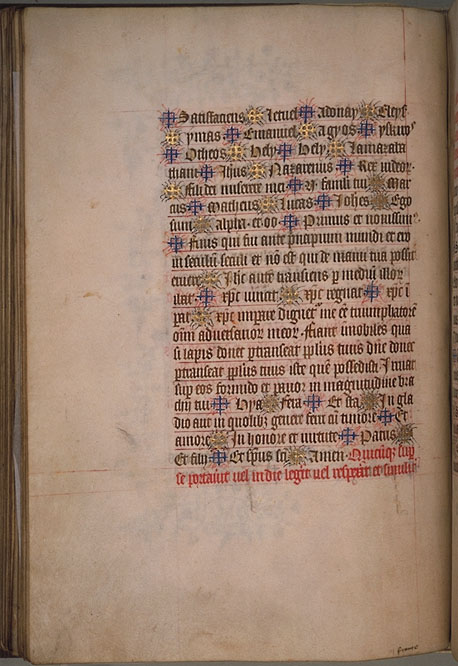 ✠ Satisfaciens ✠ Jetuel ✠ Adonay ✠ Eleys
✠ ymas ✠ Emanuel ✠ Agyos ✠ yskiros
✠ Otheos ✠ Hely ✠ Hely ✠ Lamazata
thani ✠ Jhus ✠ Nazarenus ✠ Rex iudeor
✠ fili dei miserere mei ✠ famili tui ✠ Mar
cus ✠ Matheus ✠ Lucas ✠ Johes ✠ Ego
sum ✠ alpha et oo ✠ Primus et nouissimus
✠ Finis qui fui ante principium mundi et ero
in seculum seculi et no est qui de manu tua possit
eruere ✠ Jhc autem transiens p medium illor
ibat ✠ xpc uincit ✠ xpc regnat ✠ xpc i
pat ✠ xpc impare dignet me et triumphatore
oim aduersarior meor. fiant imobiles qua
si lapis donec ptranseat pplus tuus dne donec
ptranseat pplus tuus iste que possedisti. Jrruat
sup eos formido et pauor in magnitudine bra
chij tui ✠ Hya ✠ Feta ✠ Et sta ✠ In gla
dio aut in quolibz genere ferri aut timore ✠ Et
amore ✠ In honore et uirtute ✠ Patris ✠
Et filij ✠ Et spus sci ✠ Amen. Quicuqz sup
se portauit uel in die legit uel respexit et similiter